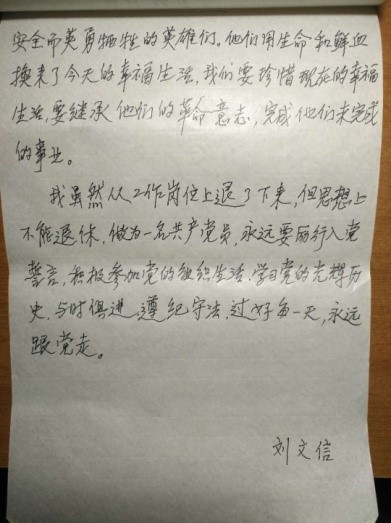 安全而英勇牺牲的英雄们。他们用生命和鲜血
换来了今天的幸福生活,我们要珍惜现在的幸福
生活,要继承他们的革命意志,完成他们未完成
的事业。
我虽然从工作岗位上退了下来,但思想上
不能退休,做为一名共产党员,永远要励行入党
誓言,积极参加党的组织生活,学习党的光辉历
史,与时俱进,遵纪守法,过好每一天,永远
跟党走。
刘文信